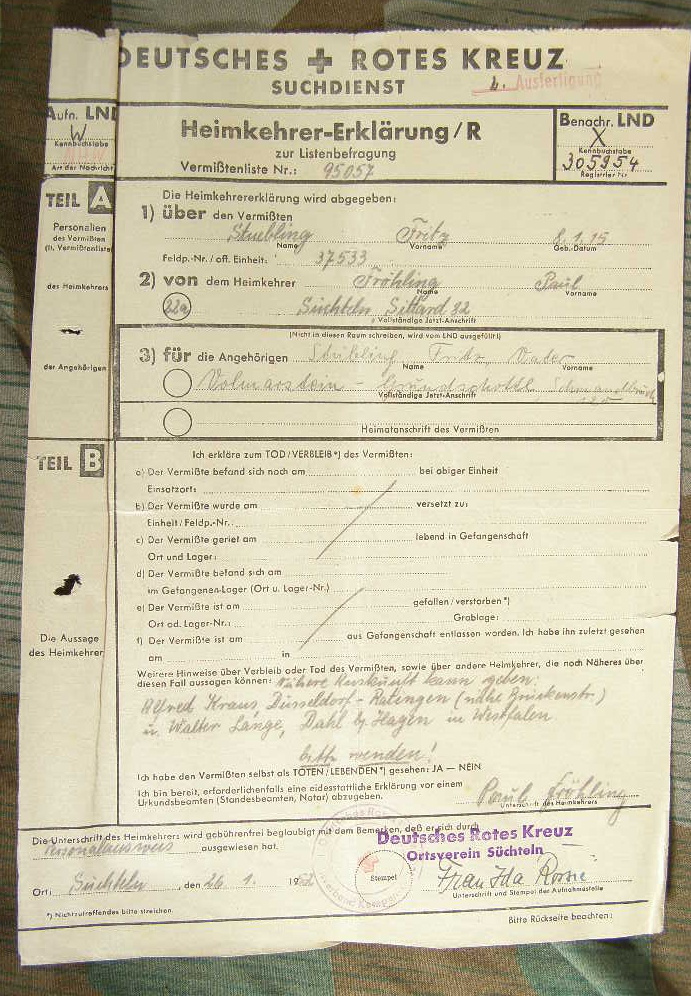 DEUTSCHES + ROTES KREUZ
SUCHDIENST
b. Ausfertigung
Aufn. LND
W
Kennbuchstabe
Art der Nachricht
Heimkehrer-Erklärung/R
zur Listenbefragung
Vermißtenliste Nr.: 95057
Benachr. LND
X
Kennbuchstabe
305954
Registrier Nr.
TEIL A
Personalien
des Vermißten
(lt. Vermißtenliste)
des Heimkehrers
der Angehörigen
Die Heimkehrererklärung wird abgegeben:
1) über den Vermißten
Stuebling Fritz 8.1.15
Name Vorname Geb.-Datum
Feldp.-Nr./off. Einheit: 37533
2) von dem Heimkehrer Fröhling Paul
Name Vorname
22a Süchteln, Sittard 82
Vollständige Jetzt-Anschrift
(Nicht in diesen Raum schreiben, wird vom LND ausgefüllt)
3) für die Angehörigen Stübling Fritz, Vater
Name Vorname
Volmarstein - Grundschöttel
Vollständige Jetzt-Anschrift
Heimatanschrift des Vermißten
TEIL B
Die Aussage
des Heimkehrers
Ich erkläre zum TOD/VERBLEIB*) des Vermißten:
a) Der Vermißte befand sich noch am bei obiger Einheit
Einsatzort:
b) Der Vermißte wurde am versetzt zu:
Einheit/Feldp.-Nr.:
c) Der Vermißte geriet am lebend in Gefangenschaft
Ort und Lager:
d) Der Vermißte befand sich am
im Gefangenen-Lager (Ort u. Lager-Nr.)
e) Der Vermißte ist am gefallen/verstorben*)
Ort od. Lager-Nr.: Grablage:
f) Der Vermißte ist am aus Gefangenschaft entlassen worden. Ich habe ihn zuletzt gesehen
am in
Weitere Hinweise über Verbleib oder Tod des Vermißten, sowie über andere Heimkehrer, die noch Näheres über
diesen Fall aussagen können: Nähere Auskunft kann geben:
Alfred Kraus, Düsseldorf-Ratingen (nähe Brückenstr.)
u. Walter Lange, Dahl b/ Hagen in Westfalen.
bitte wenden!
Ich habe den Vermißten selbst als TOTEN/LEBENDEN*) gesehen: JA — NEIN
Ich bin bereit, erforderlichenfalls eine eidesstattliche Erklärung vor einem
Urkundsbeamten (Standesbeamten, Notar) abzugeben.
Paul Fröhling
Unterschrift des Heimkehrers
Die Unterschrift des Heimkehrers wird gebührenfrei beglaubigt mit dem Bemerken, daß er sich durch
Personalausweis ausgewiesen hat.
Deutsches Rotes Kreuz
Ortsverein Süchteln
Stempel
Frau Ida
Unterschrift und Stempel der Aufnahmestelle
Ort: Süchteln, den 26. 1. 19
*) Nichtzutreffendes bitte streichen
Bitte Rückseite beachten!